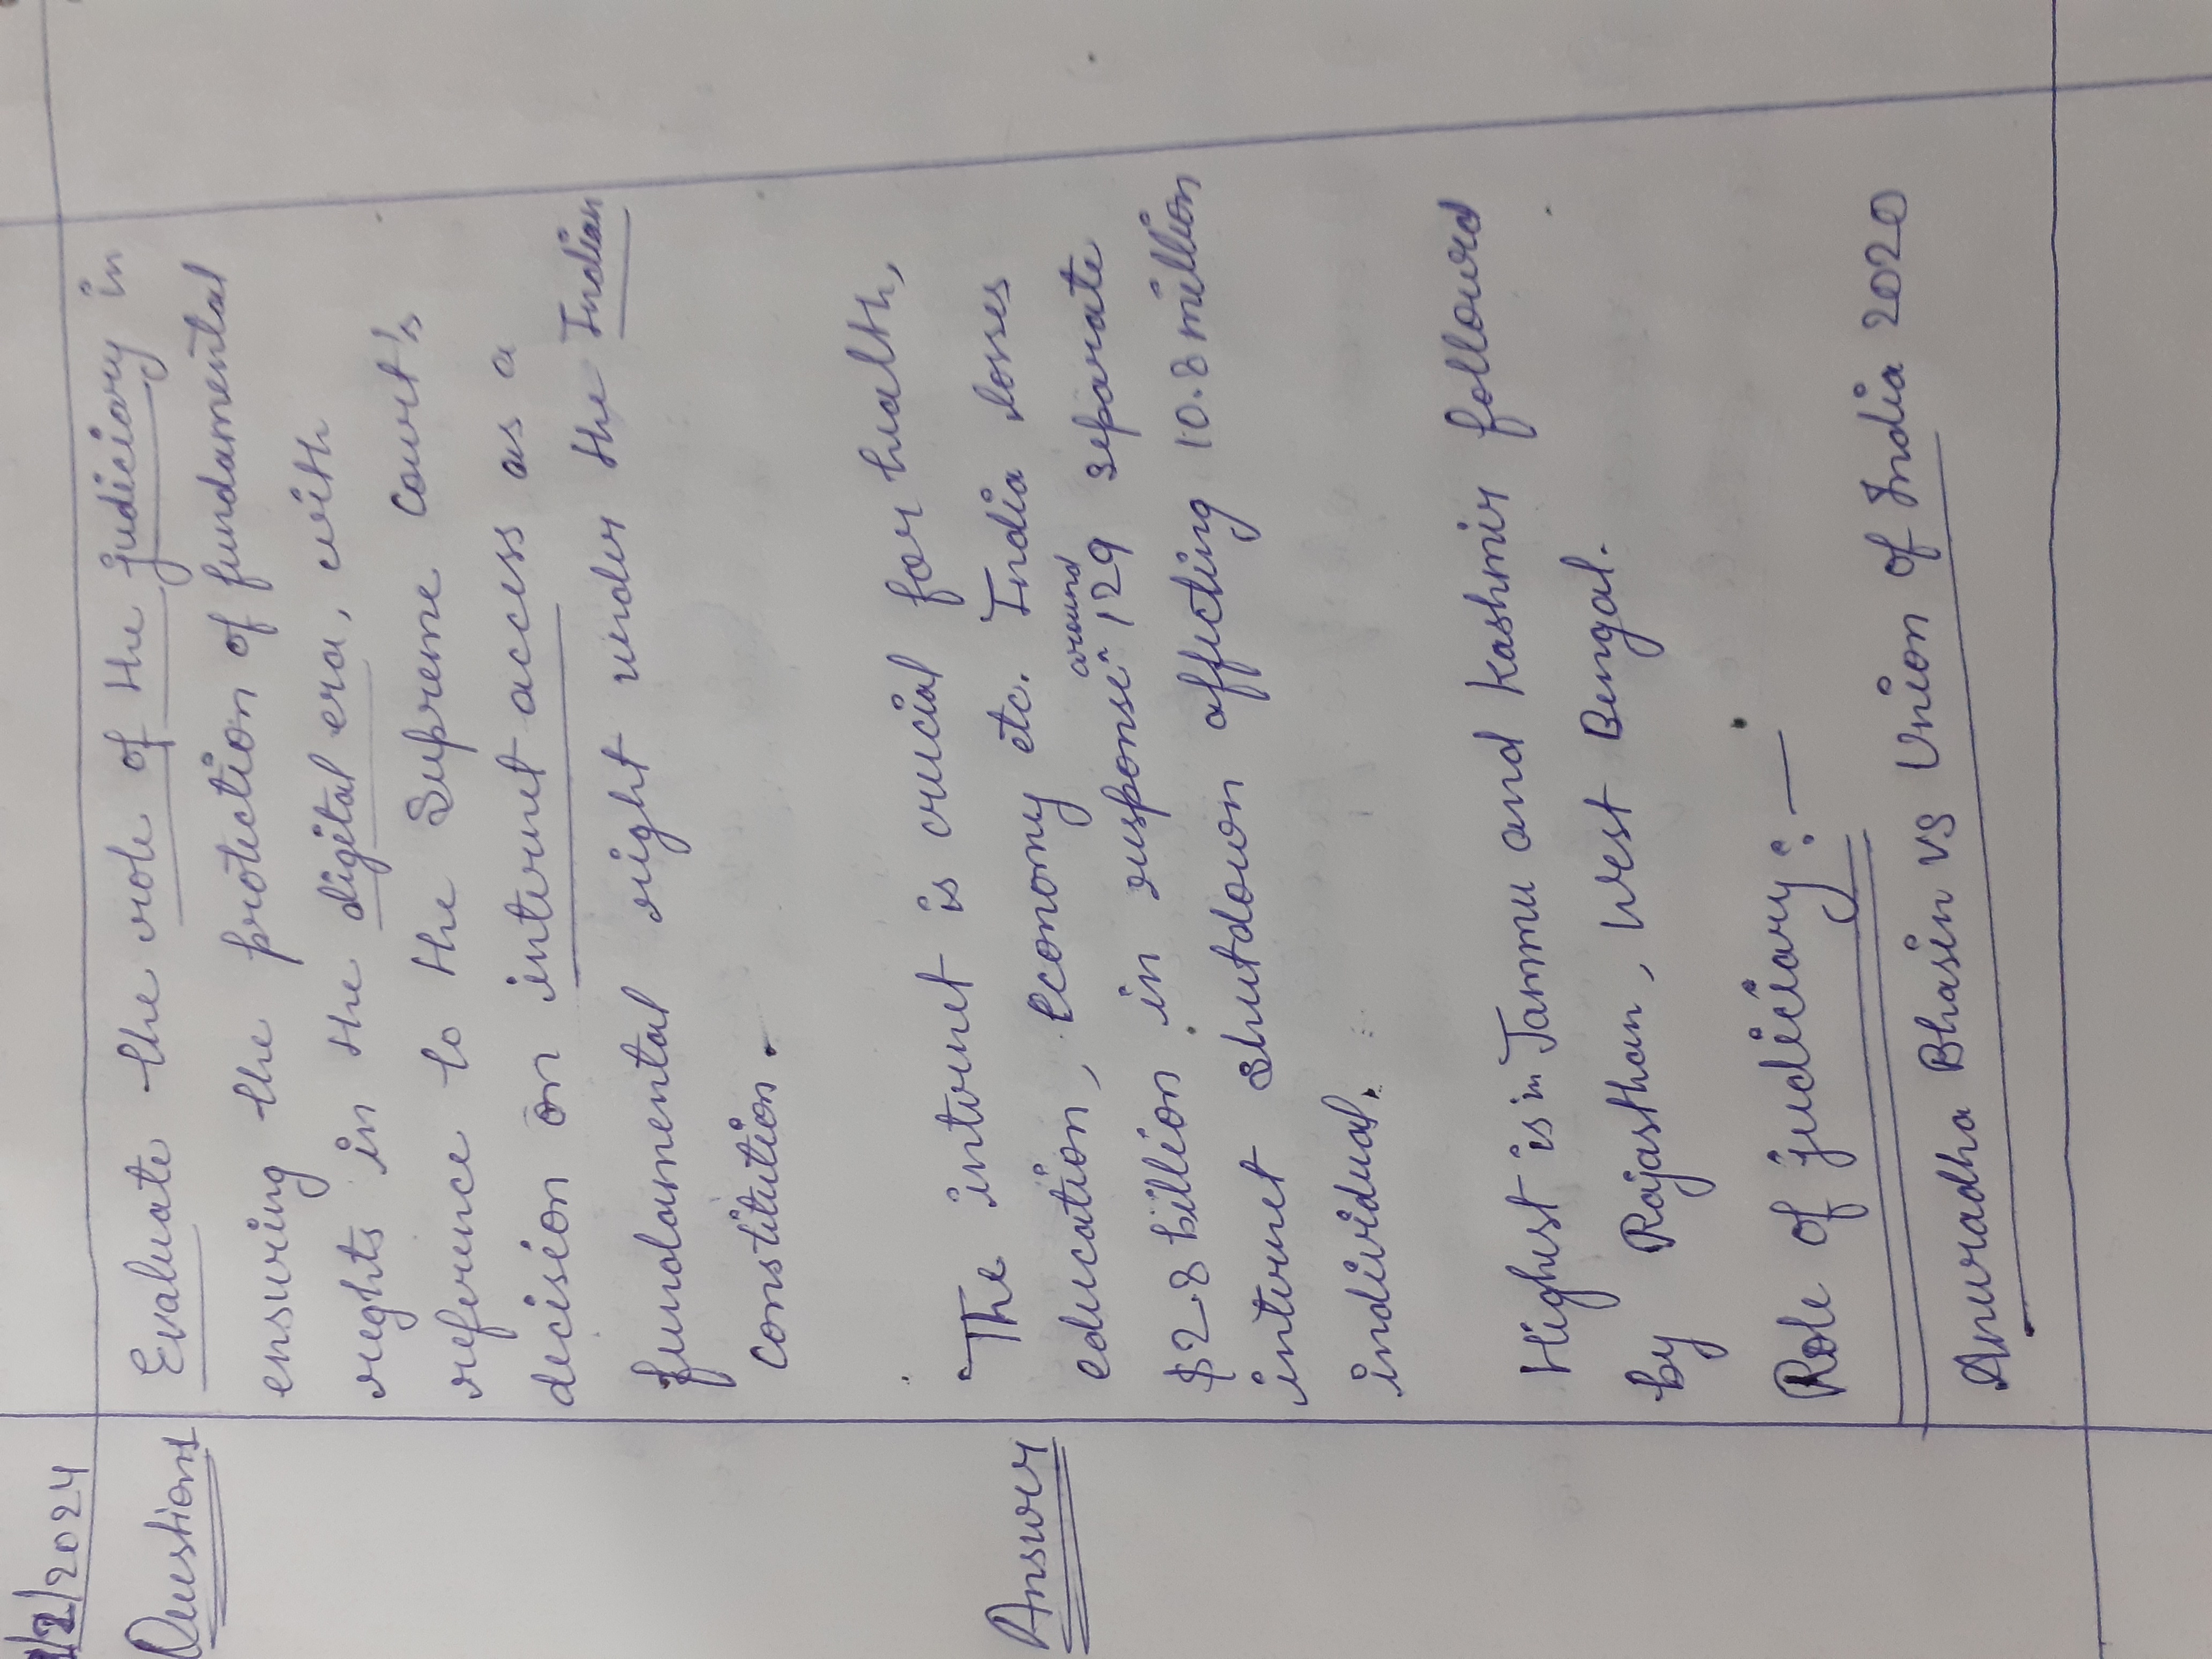 /2/2024
Questions
Evaluate the role of the judiciary in
ensuring the protection of fundamental
rights in the digital era, with
reference to the Supreme Court's
decision on internet access as a
fundamental right under the Indian
Constitution.
Answer
The internet is crucial for health,
education, economy etc. India loses
around
$2.8 billion in response 129 separate
internet shutdown affecting 10.8 million
individual.
Highest is in Jammu and Kashmir followed
by Rajasthan, West Bengal.
Role of judiciary:—
Anuradha Bhasin vs Union of India 2020